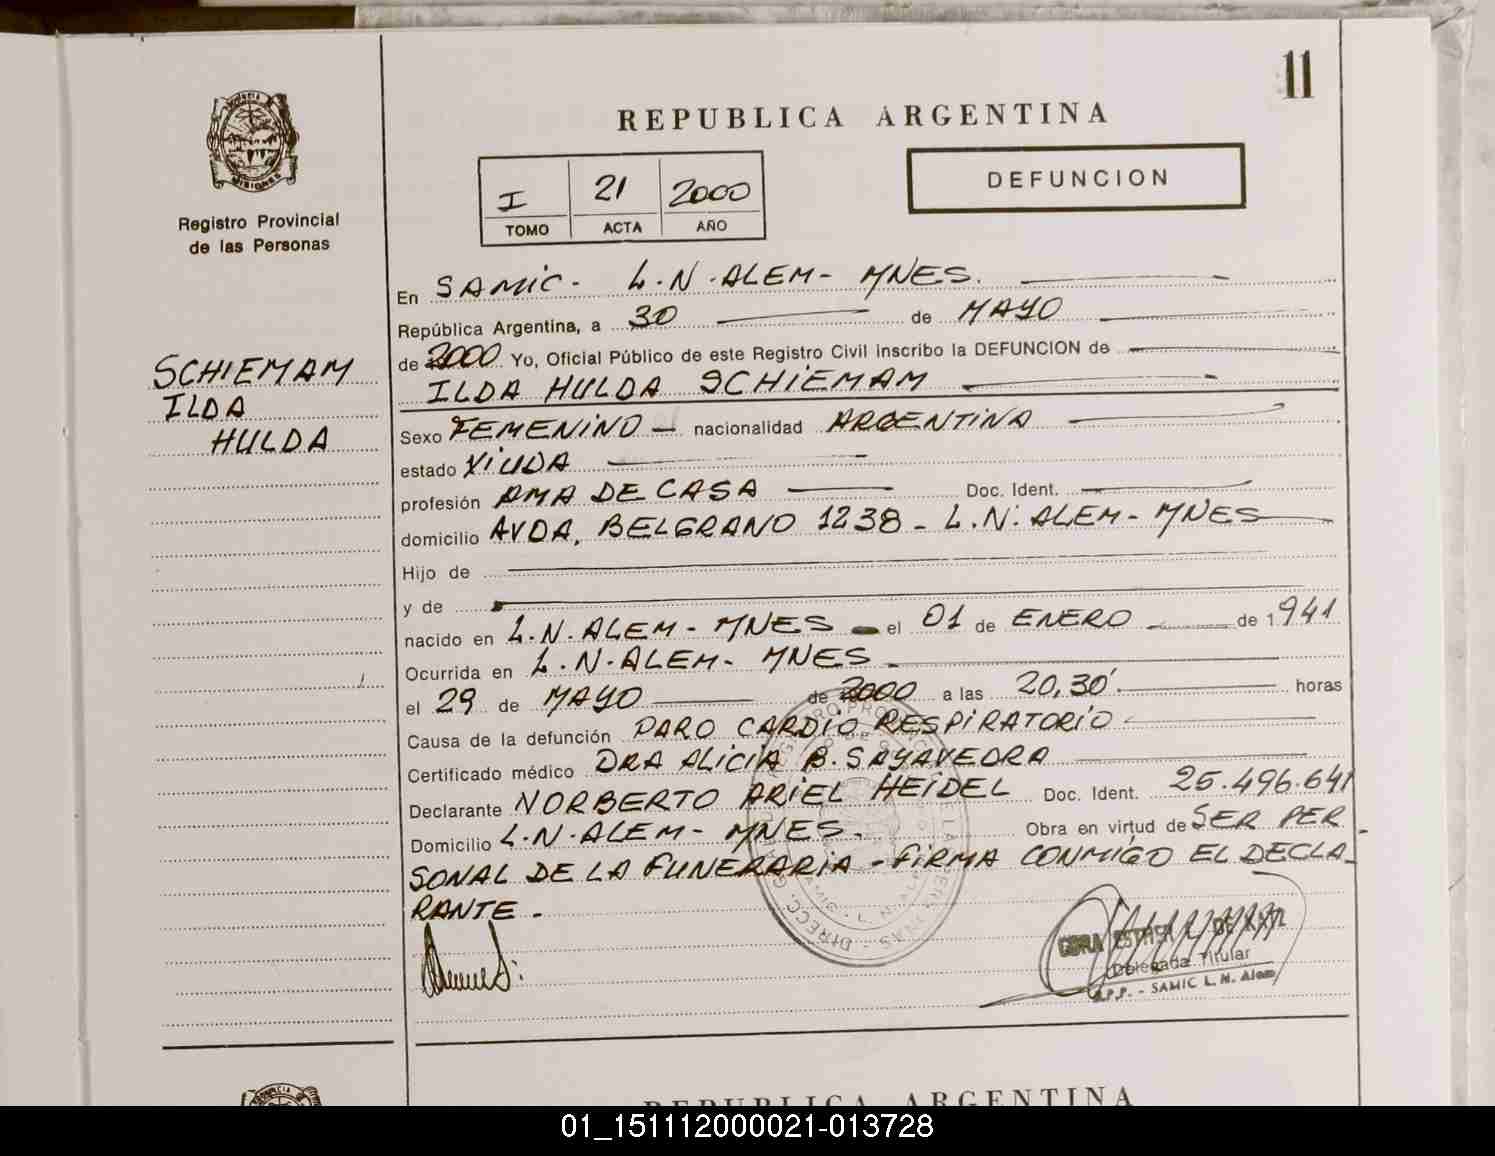 11
REPUBLICA ARGENTINA
MISIONES
Registro Provincial
de las Personas
I 21 2000
TOMO ACTA AÑO
DEFUNCION
SCHIEMAM
ILDA
HULDA
En SAMIC - L.N.ALEM - MNES.
República Argentina, a 30 de MAYO
de 2000 Yo, Oficial Público de este Registro Civil inscribo la DEFUNCION de
ILDA HULDA SCHIEMAM
Sexo FEMENINO - nacionalidad ARGENTINA
estado VIUDA
profesión AMA DE CASA Doc. Ident.
domicilio AVDA. BELGRANO 1238 - L.N. ALEM - MNES
Hijo de
y de
nacido en L.N.ALEM - MNES - el 01 de ENERO de 1941
Ocurrida en L.N.ALEM - MNES
el 29 de MAYO de 2000 a las 20,30' horas
Causa de la defunción PARO CARDIO RESPIRATORIO
Certificado médico DRA ALICIA B. SAYAVEDRA
Declarante NORBERTO ARIEL HEIDEL Doc. Ident. 25.496.641
Domicilio L.N.ALEM - MNES. Obra en virtud de SER PER
SONAL DE LA FUNERARIA - FIRMA CONMIGO EL DECLA
RANTE -
ESTHER L. DE
Delegada Titular
R.P.P. - SAMIC L. N. Alem
REPUBLICA ARGENTINA
01_151112000021-013728